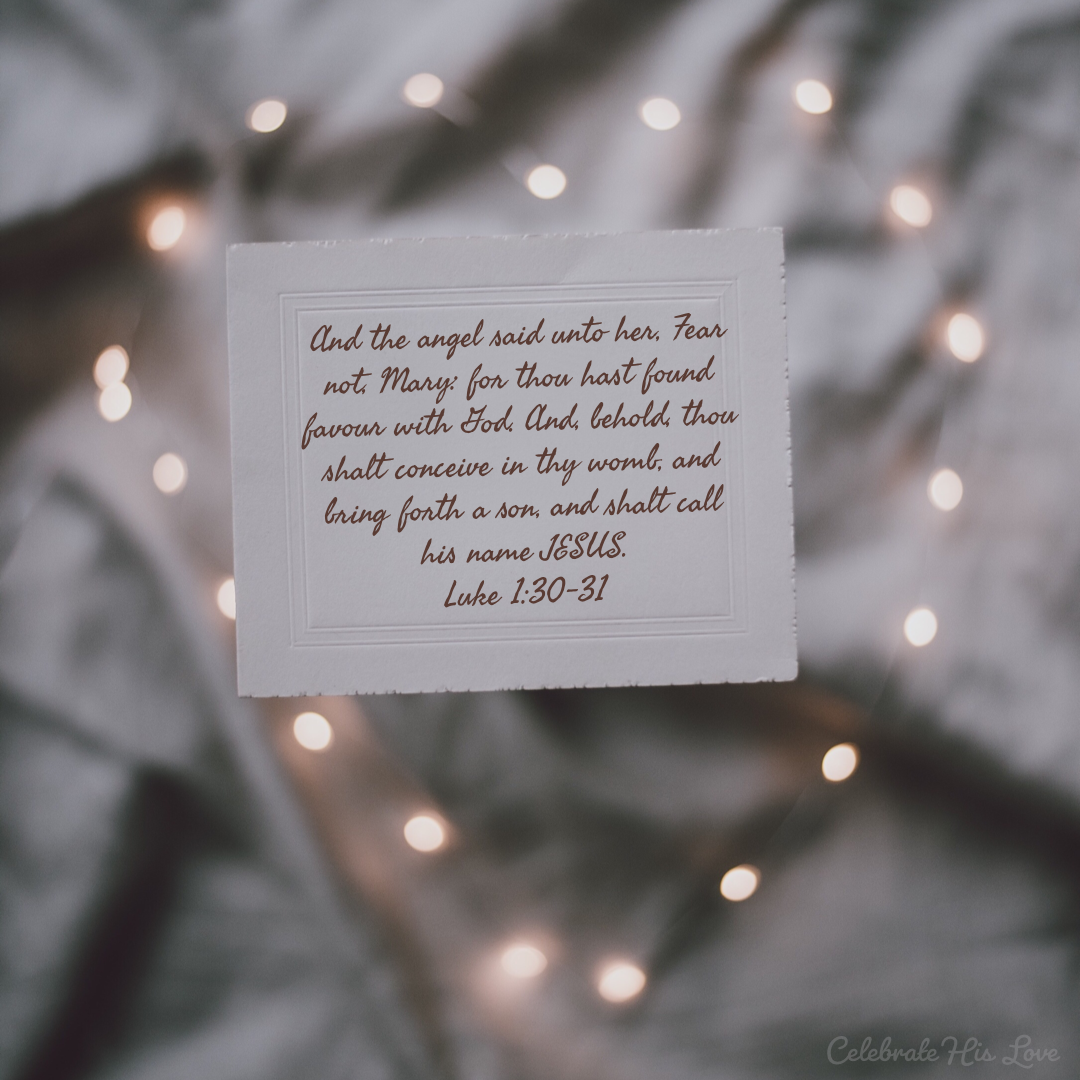 And the angel said unto her, Fear
not, Mary: for thou hast found
favour with God. And, behold, thou
shalt conceive in thy womb, and
bring forth a son, and shalt call
his name JESUS.
Luke 1:30-31
Celebrate His Love